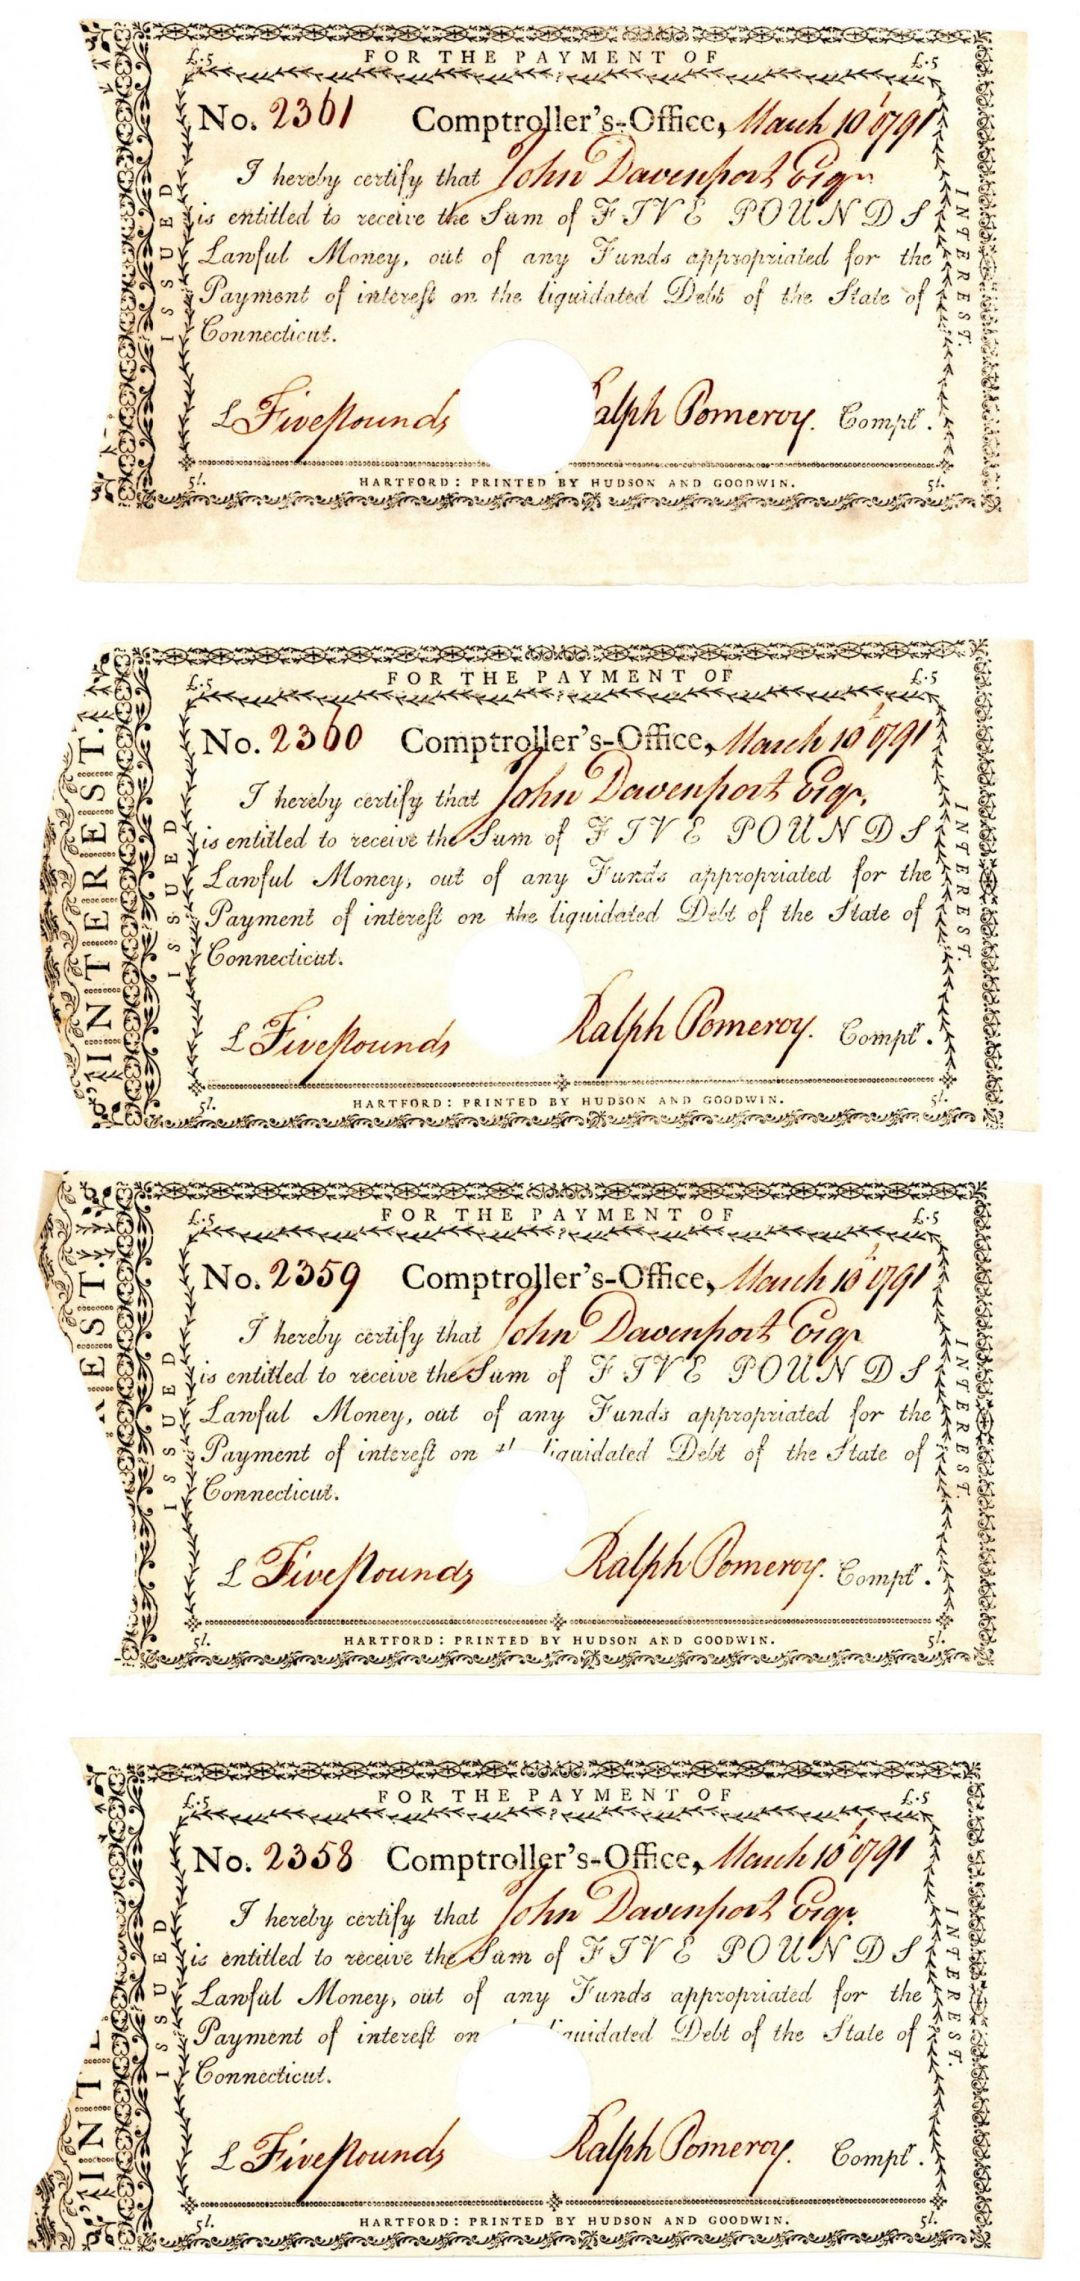 FOR THE PAYMENT OF
£.5 £.5
No. 2361 Comptroller's-Office, March 10t 1791
I hereby certify that John Davenport Esqr
is entitled to receive the Sum of FIVE POUNDS
Lawful Money, out of any Funds appropriated for the
Payment of interest on the liquidated Debt of the State of
Connecticut.
£ Five pounds Ralph Pomeroy. Comptr.
5l. HARTFORD: PRINTED BY HUDSON AND GOODWIN. 5l.
ISSUED
INTEREST.
FOR THE PAYMENT OF
£.5 £.5
No. 2360 Comptroller's-Office, March 10t 1791
I hereby certify that John Davenport Esqr.
is entitled to receive the Sum of FIVE POUNDS
Lawful Money, out of any Funds appropriated for the
Payment of interest on the liquidated Debt of the State of
Connecticut.
£ Five pounds Ralph Pomeroy. Comptr.
5l. HARTFORD: PRINTED BY HUDSON AND GOODWIN. 5l.
INTEREST.
ISSUED
INTEREST.
FOR THE PAYMENT OF
£.5 £.5
No. 2359 Comptroller's-Office, March 10t 1791
I hereby certify that John Davenport Esqr
is entitled to receive the Sum of FIVE POUNDS
Lawful Money, out of any Funds appropriated for the
Payment of interest on liquidated Debt of the State of
Connecticut.
£ Five pounds Ralph Pomeroy. Comptr.
5l. HARTFORD: PRINTED BY HUDSON AND GOODWIN. 5l.
REST.
ISSUED
INTEREST.
FOR THE PAYMENT OF
£.5 £.5
No. 2358 Comptroller's-Office, March 10t 1791
I hereby certify that John Davenport Esqr.
is entitled to receive the Sum of FIVE POUNDS
Lawful Money, out of any Funds appropriated for the
Payment of interest on liquidated Debt of the State of
Connecticut.
£ Five pounds Ralph Pomeroy. Comptr.
5l. HARTFORD: PRINTED BY HUDSON AND GOODWIN. 5l.
INTE
ISSUED
INTEREST.